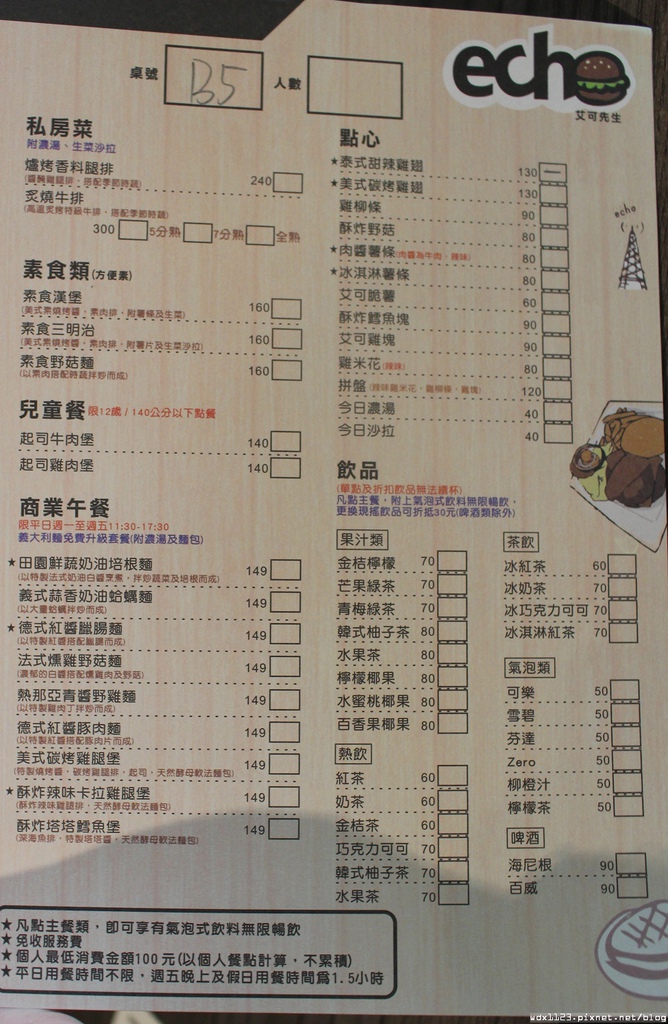 桌號 B5 人數
echo
艾可先生
私房菜
附濃湯、生菜沙拉
爐烤香料腿排 240
炙燒牛排
(高溫炙烤特級牛排，搭配季節時蔬)
300 5分熟 7分熟 全熟
素食類(方便素)
素食漢堡 160
(美式素燒烤醬，素肉排，附薯條及生菜)
素食三明治 160
(美式素燒烤醬，素肉排，附薯片及生菜沙拉)
素食野菇麵 160
(以素肉搭配時蔬拌炒而成)
兒童餐 限12歲/140公分以下點餐
起司牛肉堡 140
起司雞肉堡 140
商業午餐
限平日週一至週五11:30-17:30
義大利麵免費升級套餐(附濃湯及麵包)
★田園鮮蔬奶油培根麵 149
(以特製法式奶油白醬烹煮，拌炒蔬菜及培根而成)
義式蒜香奶油蛤蠣麵 149
(以大量蛤蠣拌炒而成)
★德式紅醬臘腸麵 149
(以特製紅醬搭配臘腸而成)
法式燻雞野菇麵 149
(濃郁的白醬搭配燻雞肉及野菇)
熱那亞青醬野雞麵 149
(以特製雞肉丁拌炒而成)
德式紅醬豚肉麵 149
(以特製紅醬搭配豚肉片而成)
美式碳烤雞腿堡 149
(特製燒烤醬，碳烤雞腿排，起司，天然酵母軟法麵包)
★酥炸辣味卡拉雞腿堡 149
(酥炸辣味雞腿排，天然酵母軟法麵包)
酥炸塔塔鱈魚堡 149
(深海魚排，特製塔塔醬，天然酵母軟法麵包)
★凡點主餐類，即可享有氣泡式飲料無限暢飲
★免收服務費
★個人最低消費金額100元(以個人餐點計算，不累積)
★平日用餐時間不限，週五晚上及假日用餐時間為1.5小時
點心
★泰式甜辣雞翅 130 一
★美式碳烤雞翅 130
雞柳條 90
酥炸野菇 80
★肉醬薯條(肉醬為牛肉，辣味) 80
★冰淇淋薯條 80
艾可脆薯 60
酥炸鱈魚塊 90
艾可雞塊 90
雞米花(辣味) 80
拼盤(辣味雞米花，雞柳條，雞塊) 120
今日濃湯 40
今日沙拉 40
echo
飲品
(單點及折扣飲品無法續杯)
凡點主餐，附上氣泡式飲料無限暢飲，
更換現搖飲品可折抵30元(啤酒類除外)
果汁類
金桔檸檬 70
芒果綠茶 70
青梅綠茶 70
韓式柚子茶 80
水果茶 80
檸檬椰果 80
水蜜桃椰果 80
百香果椰果 80
熱飲
紅茶 60
奶茶 60
金桔茶 60
巧克力可可 70
韓式柚子茶 70
水果茶 70
茶飲
冰紅茶 60
冰奶茶 70
冰巧克力可可 70
冰淇淋紅茶 70
氣泡類
可樂 50
雪碧 50
芬達 50
Zero 50
柳橙汁 50
檸檬茶 50
啤酒
海尼根 90
百威 90
wdx1123.pixnet.net/blog